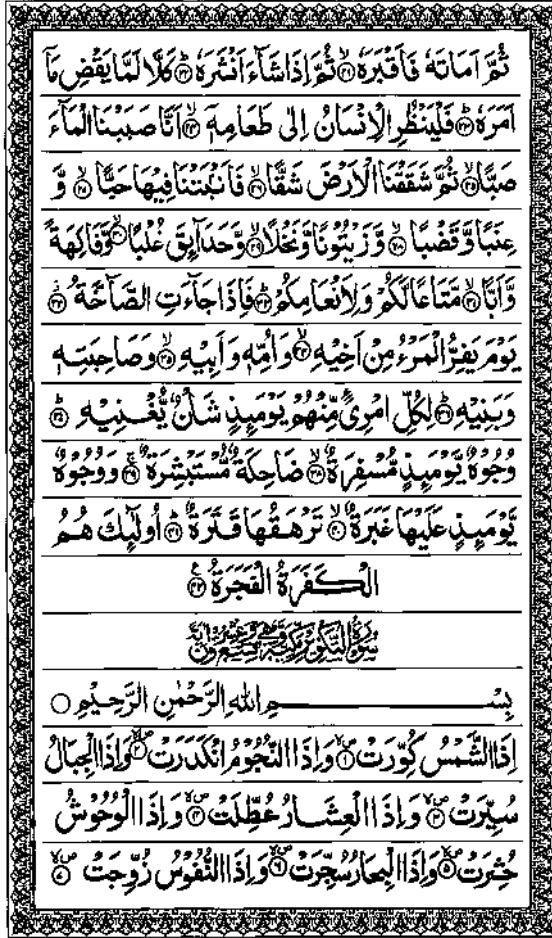 ثُمَّ اَمَاتَهٗ فَاَقْبَرَهٗ ۙ﴿۲۱﴾ ثُمَّ اِذَا شَآءَ اَنْشَرَهٗ ؕ﴿۲۲﴾ كَلَّا لَمَّا يَقْضِ مَاۤ
اَمَرَهٗ ؕ﴿۲۳﴾ فَلْيَنْظُرِ الْاِنْسَانُ اِلٰى طَعَامِهٖۤ ۙ﴿۲۴﴾ اَنَّا صَبَبْنَا الْمَآءَ
صَبًّا ۙ﴿۲۵﴾ ثُمَّ شَقَقْنَا الْاَرْضَ شَقًّا ۙ﴿۲۶﴾ فَاَنْۢبَتْنَا فِيْهَا حَبًّا ۙ﴿۲۷﴾ وَّ
عِنَبًا وَّقَضْبًا ۙ﴿۲۸﴾ وَّزَيْتُوْنًا وَّنَخْلًا ۙ﴿۲۹﴾ وَّحَدَآئِقَ غُلْبًا ۙ﴿۳۰﴾ وَّفَاكِهَةً
وَّاَبًّا ۙ﴿۳۱﴾ مَّتَاعًا لَّكُمْ وَلِاَنْعَامِكُمْ ؕ﴿۳۲﴾ فَاِذَا جَآءَتِ الصَّآخَّةُ ۫﴿۳۳﴾
يَوْمَ يَفِرُّ الْمَرْءُ مِنْ اَخِيْهِ ۙ﴿۳۴﴾ وَاُمِّهٖ وَاَبِيْهِ ۙ﴿۳۵﴾ وَصَاحِبَتِهٖ
وَبَنِيْهِ ؕ﴿۳۶﴾ لِكُلِّ امْرِئٍ مِّنْهُمْ يَوْمَئِذٍ شَاْنٌ يُّغْنِيْهِ ؕ﴿۳۷﴾
وُجُوْهٌ يَّوْمَئِذٍ مُّسْفِرَةٌ ۙ﴿۳۸﴾ ضَاحِكَةٌ مُّسْتَبْشِرَةٌ ۚ﴿۳۹﴾ وَوُجُوْهٌ
يَّوْمَئِذٍ عَلَيْهَا غَبَرَةٌ ۙ﴿۴۰﴾ تَرْهَقُهَا قَتَرَةٌ ؕ﴿۴۱﴾ اُولٰٓئِكَ هُمُ
الْكَفَرَةُ الْفَجَرَةُ ﴿۴۲﴾
سُوْرَةُ التَّكْوِيْرِ مَكِّيَّةٌ وَّهِيَ تِسْعٌ وَّعِشْرُوْنَ اٰيَةً
بِسْمِ اللّٰهِ الرَّحْمٰنِ الرَّحِيْمِ ○
اِذَا الشَّمْسُ كُوِّرَتْ ۪ۙ﴿۱﴾ وَاِذَا النُّجُوْمُ انْكَدَرَتْ ۪ۙ﴿۲﴾ وَاِذَا الْجِبَالُ
سُيِّرَتْ ۪ۙ﴿۳﴾ وَاِذَا الْعِشَارُ عُطِّلَتْ ۪ۙ﴿۴﴾ وَاِذَا الْوُحُوْشُ
حُشِرَتْ ۪ۙ﴿۵﴾ وَاِذَا الْبِحَارُ سُجِّرَتْ ۪ۙ﴿۶﴾ وَاِذَا النُّفُوْسُ زُوِّجَتْ ۪ۙ﴿۷﴾